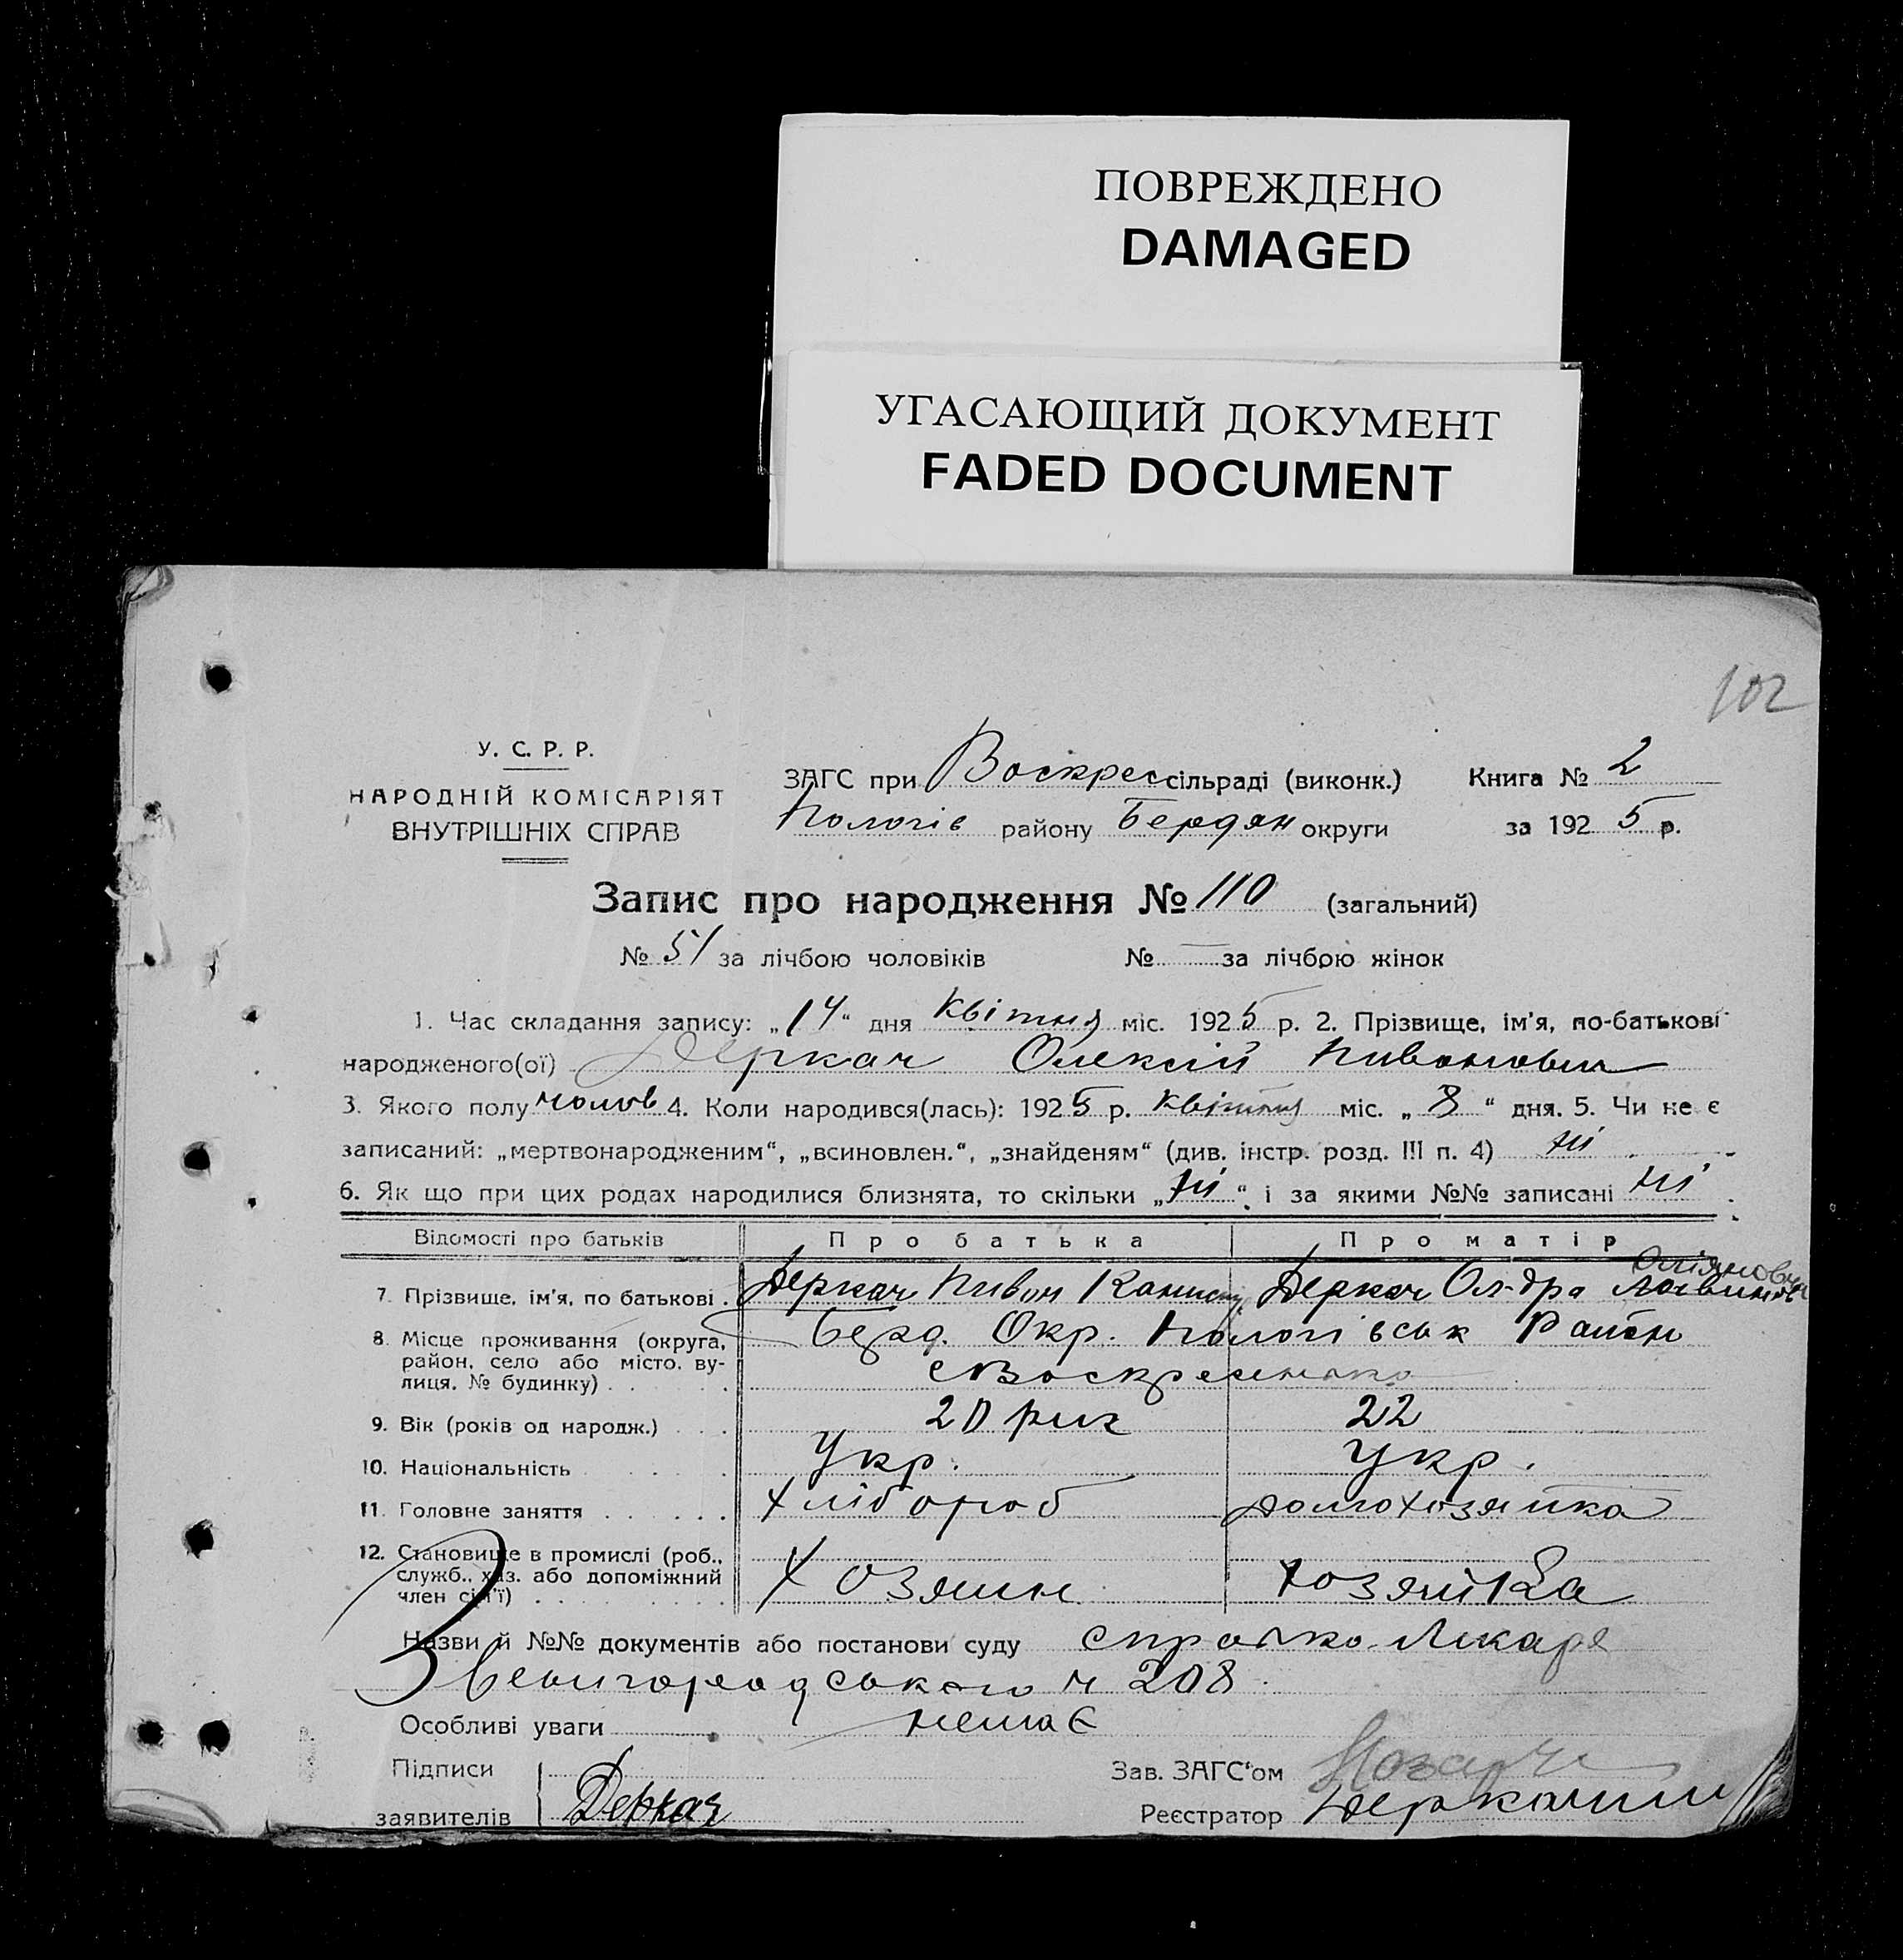 ПОВРЕЖДЕНО
DAMAGED
УГАСАЮЩИЙ ДОКУМЕНТ
FADED DOCUMENT
102
У. С. Р. Р.
НАРОДНІЙ КОМІСАРІЯТ
ВНУТРІШНІХ СПРАВ
ЗАГС при Воскрес сільраді (виконк.) Книга № 2
Пологів району Бердян округи за 1925 р.
Запис про народження № 110 (загальний)
№ 51 за лічбою чоловіків № — за лічбою жінок
1. Час складання запису: „14“ дня Квітня міс. 1925 р. 2. Прізвище, ім'я, по-батькові
народженого(ої) Деркач Олексій Пивонович
3. Якого полу чолов 4. Коли народився(лась): 1925 р. Квітня міс. „8“ дня. 5. Чи не є
записаний: „мертвонародженим“, „всиновлен.“, „знайденям“ (див. інстр. розд. III п. 4) ні
6. Як що при цих родах народилися близнята, то скільки „ні“ і за якими №№ записані ні
Відомості про батьків Про батька Про матір
7. Прізвище, ім'я, по батькові. Деркач Пивон Деркач Ол-дра
8. Місце проживання (округа, Берд. Окр. Пологівськ Район
район, село або місто, ву-
лиця, № будинку) с Воскресенка
9. Вік (років од народж.) 20 рик 22
10. Національність Укр. Укр.
11. Головне заняття Хлібороб домохозяйка
12. Становище в промислі (роб.,
служб., хаз. або допоміжний Хозяин хозяйка
член сім'ї)
Назви й №№ документів або постанови суду справка Лікаря
Звенигородського ч 208
Особливі уваги немає
Підписи Зав. ЗАГС'ом
заявителів Деркач Реєстратор